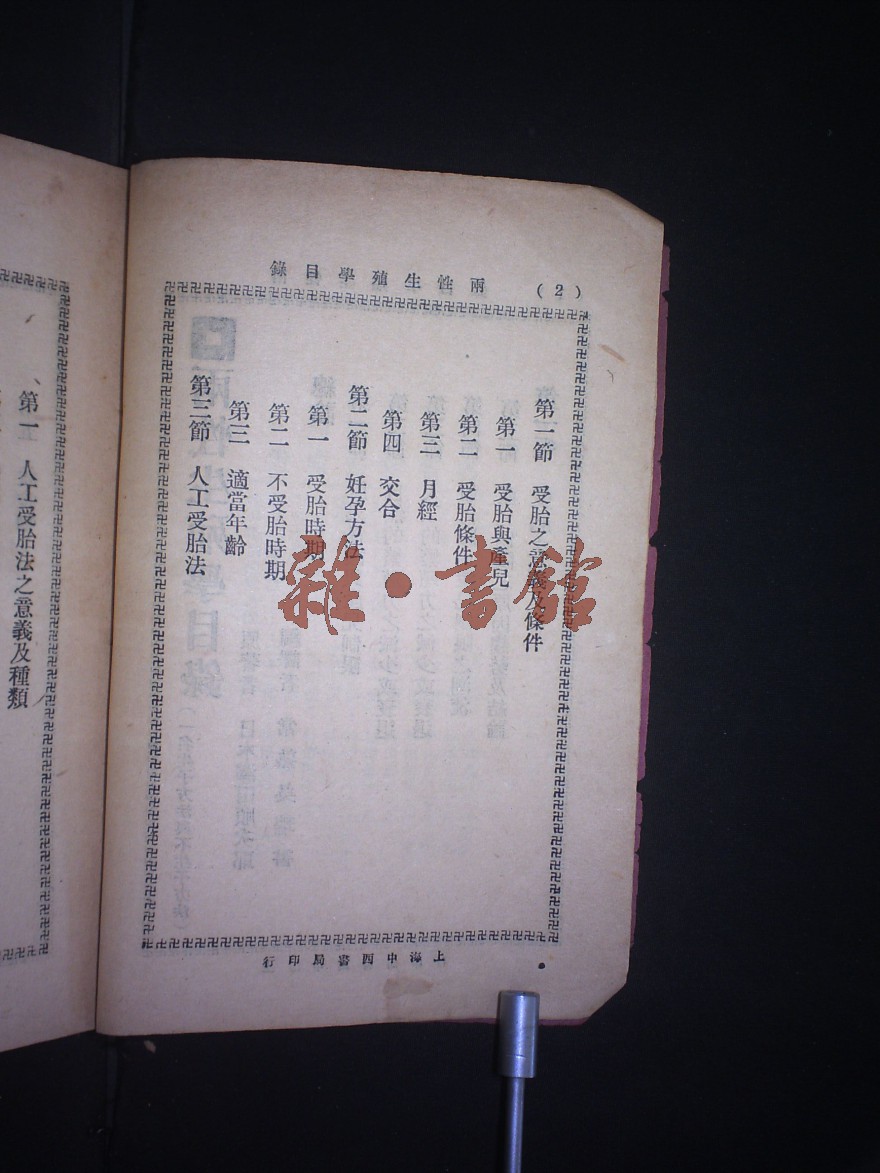 (2)
兩性生殖學目錄
第一節 受胎之意義及條件
第一 受胎與產兒
第二 受胎條件
第三 月經
第四 交合
第二節 妊孕方法
第一 受胎時期
第二 不受胎時期
第三 適當年齡
第三節 人工受胎法
上海中西書局印行
第一 人工受胎法之意義及種類
雜·書館